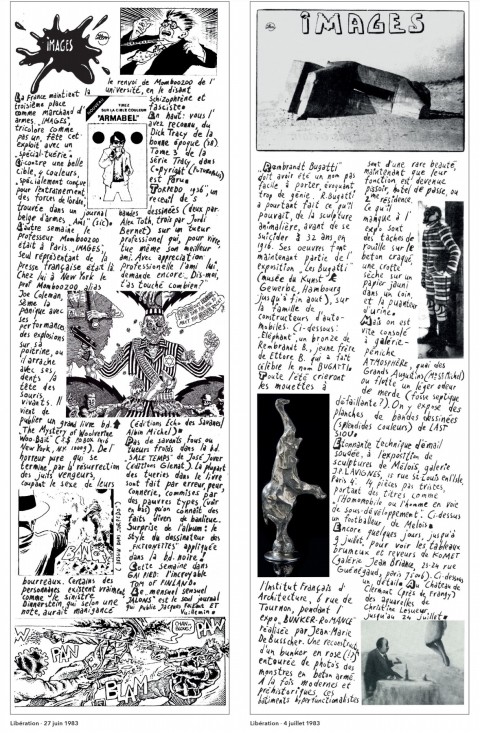 IMAGES
La France maintient la
troisième place
comme marchand d'
armes. "IMAGES",
tricolore comme
pas un, fête cet
exploit avec un
"spécial-tuerie".
Ci contre une belle
cible, 4 couleurs,
spécialement conçue
pour l'entraînement
des forces de l'ordre,
trouvée dans un journal
belge d'armes, "AMI" (sic)
L'autre semaine le
professeur Momboozoo
était à Paris. IMAGES,
seul représentant de la
presse française était là.
Chez lui à New York le
prof Momboozoo alias
Joe Coleman,
sème la
panique avec
ses
performances
des explosions
sur sa
poitrine, ou
l'arrache
avec ses
dents la
tête des
souris
vivants. Il
vient de
publier un grand livre bd.
"The Mystery of Wolverine
Woo-Bait"
New York, NY 10009). De l'
horreur pure qui se
termine, par la résurrection
des juifs vengeurs,
coupant le sexe de leurs
bourreaux. Certains des
personnages existent vraiment
comme le sinistre
Dinnerstein, qui selon une
note, aurait manigancé
le renvoi de Momboozoo de l'
université, en le disant
schizophrène et
fasciste
TIREZ
SUR LA CIBLE COULEUR
"ARMABEL"
En haut: vous l'
avez reconnu, du
Dick Tracy de la
bonne époque
Tome 3 de la
série Toby dans
Copyright (Futuropolis)
est paru
TORPEDO 1936", un
recueil de 5
bandes dessinées (deux par
Alex Toth, trois par Jordi
Bernet) sur un tueur
professionnel qui, pour vivre
tue même son meilleur
ami. Avec appréciation
professionnelle l'ami lui
demande encore "Dis-moi,
t'as touché combien?"
(éditions Echo des Savanes/
Albin Michel)
Pas de savants fous ou
tueurs froids dans la bd.
"SALE TEMPS" de José Jover
(éditions Glenat). La plupart
des tueries dans le livre
sont fait par erreur, par
connerie, commises par
des pauvres types
qu'on connaît des
faits divers de banlieue.
Surprise de l'album: le
style du dessinateur des
"FICTIONETTES" appliquée
dans la bd. noire!
Cette semaine dans
GAI PIED: l'incroyable
TOM OF FINLAND
Le mensuel sensuel
"JALONS" est le seul journal
PAW
PAN
BLAM
Libération · 27 juin 1983
IMAGES
"Rembrandt Bugatti"
doit avoir été un nom pas
facile à porter, évoquant
trop de génie. R. Bugatti
a pourtant fait ce qu'il
pouvait, de la sculpture
animalière, avant de se
suicider à 32 ans, en
1916. Ses oeuvres font
maintenant partie de l'
exposition "Les Bugatti"
(musée du Kunst
Gewerbe, Hambourg
jusqu'à fin aout), sur
la famille de
constructeurs d'auto-
mobiles. Ci-dessous:
"Éléphant", un bronze de
Rembrandt B., jeune frère
de Ettore B. qui a fait
célèbre le nom BUGATTI
Toute l'été crieront
les mouettes à
l'Institut Français d'
Architecture, 6 rue de
Tournon, pendant l'
expo "BUNKER-ROMANCE"
réalisée par Jean-Marie
De Busscher. Une reconstruct.
d'un bunker en rose (!)
entourée de photos des
monstres en béton armé.
A la fois modernes et
préhistoriques, ces
bâtiments hyperfonctionalistes
sont d'une rare beauté,
maintenant que leur
fonction est devenue
pissoir, hôtel de passe, ou
2ème résidence.
Ce qu'il
manque à l'
expo sont
des tâches de
rouille sur le
béton craqué,
une crotte
sèche sur un
papier jauni
dans un coin,
et la puanteur
d'urine
Mais on est
vite consolé
à galerie-
péniche
ATMOSPHÈRE, quai des
Grands Augustins (M° St Michel)
ou flotte un léger odeur
de merde (fosse septique
défaillante?). On y expose des
planches de bandes dessinées
(splendides couleurs) de CAST
SIOU
Etonnante technique d'émail
soudée, à l'exposition de
sculptures de Meloïs, galerie
J.P. LAVIGNES, 15 rue St Louis en l'île,
Paris 4°. 14 pièces pas tristes,
portant des titres comme
"l'Homomobile ou l'homme en voie
de sous-développement". Ci-dessus
un footballeur de Melois
Encore quelques jours, jusqu'à
9 juillet, pour voir les tableaux
brumeux et rêveurs de KOMET
(galerie Jean Briance, 23-24 rue
Guénégaud, paris 75006). Ci-dessous
un détail. Au Château de
Clermont
des aquarelles de
Christine Lesueur,
jusqu'au 24 juillet
Libération · 4 juillet 1983